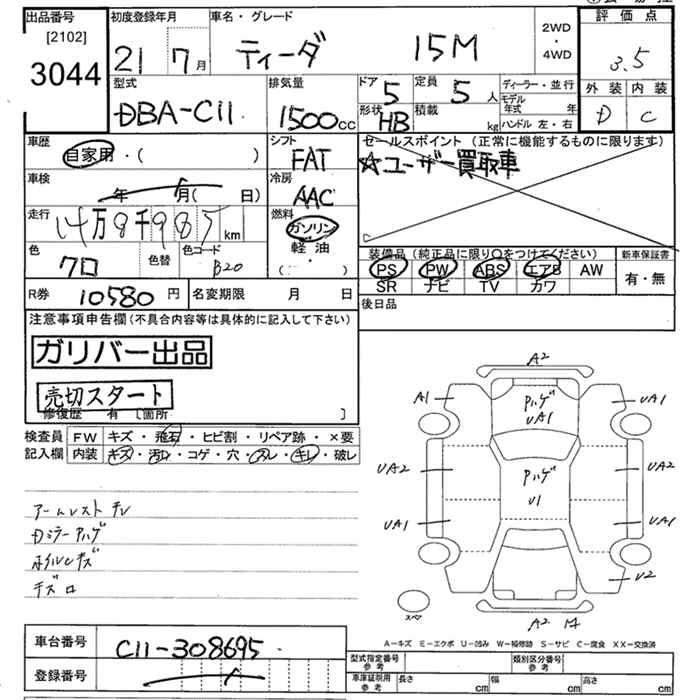 出品番号
[2102]
3044
初度登録年月
21 7月
車名・グレード
ティーダ 15M
2WD
・
4WD
評価点
3.5
外装 内装
D C
型式
DBA-C11
排気量
1500cc
ドア 5
定員 5人
形状 HB
積載 kg
ディーラー・並行
モデル年式 年
ハンドル 左・右
車歴
自家用・( )
シフト
FAT
セールスポイント (正常に機能するものに限ります)
☆ユーザー買取車
車検
年 月( 日)
冷房
AAC
走行
14万8千985km
燃料
ガソリン
軽油
( ・ )
色
クロ
色替
色コード
B20
装備品 (純正品に限り○をつけてください)
PS PW ABS エアB AW
SR ナビ TV カワ
新車保証書
有・無
R券 10580円
名変期限 月 日
後日品
注意事項申告欄(不具合内容等は具体的に記入して下さい)
ガリバー出品
売切スタート
修復歴 有 [箇所 ]
検査員
記入欄
FW キズ・飛石・ヒビ割・リペア跡・×要
内装 キズ・汚レ・コゲ・穴・スレ・キレ・破レ
アームレスト チレ
Dミラー Pハゲ
ホイルCキズ
キズロ
A2
A1
UA1
Pハゲ
UA1
UA2
UA2
Pハゲ
U1
UA1
UA1
U2
スペア
A2
A-キズ E-エクボ U-凹み W-補修跡 S-サビ C-腐食 XX-交換済
車台番号
C11-308695
登録番号
型式指定番号
参考
類別区分番号
参考
車庫証明用
参考
長さ cm
幅 cm
高さ cm